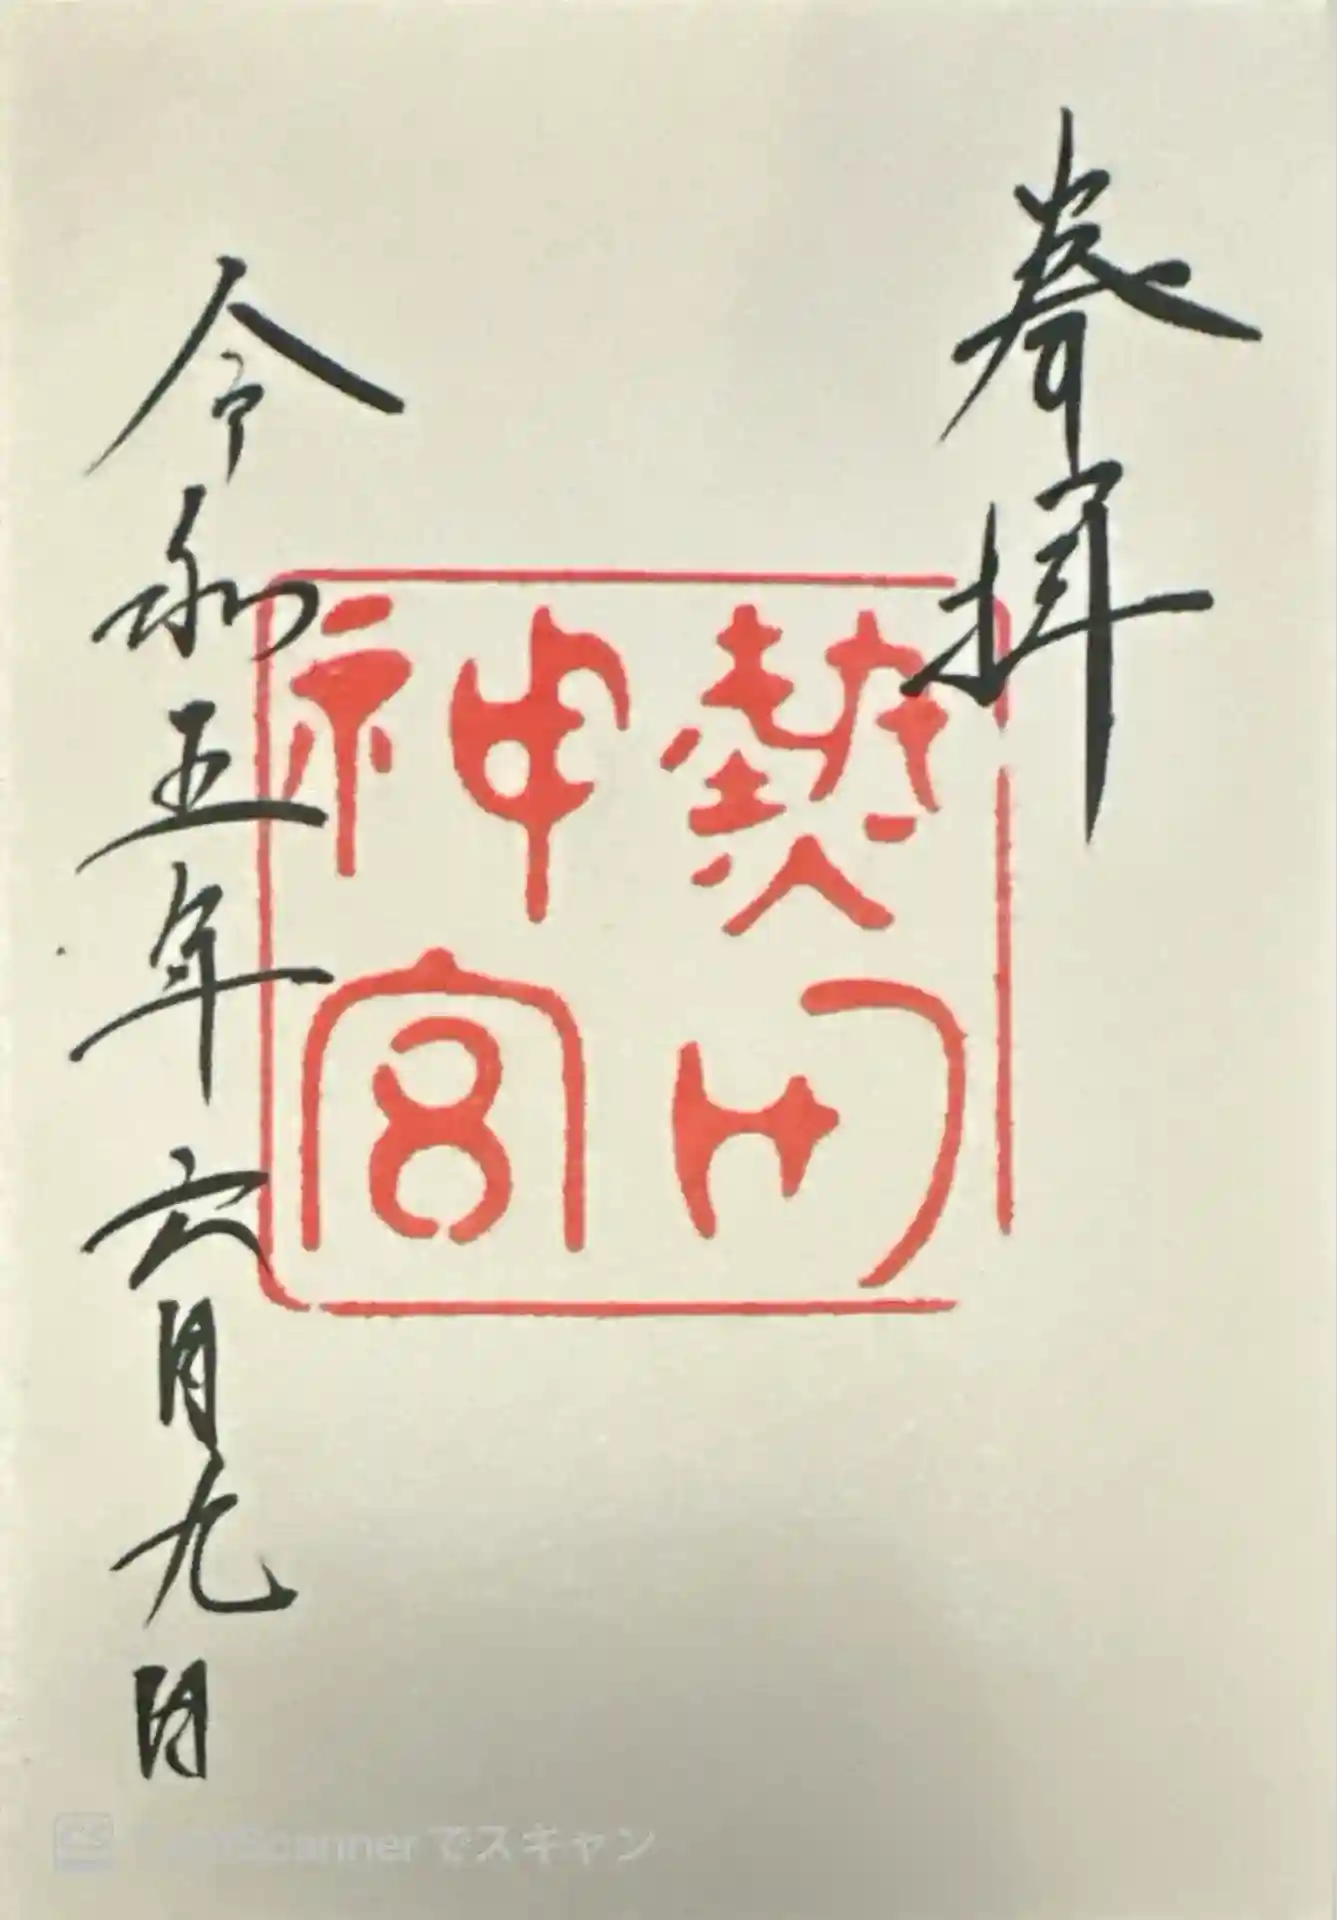 奉拝
熱田
神宮
令和五年六月九日
CamScannerでスキャン